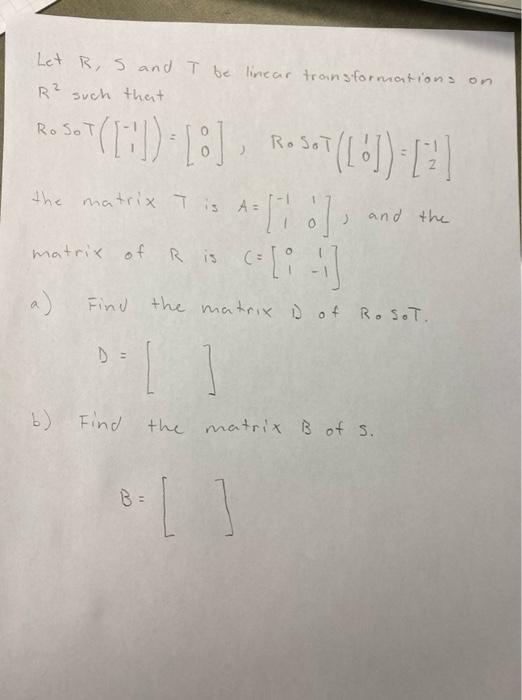 Let R, S and T be linear transformations on
R² such that
R∘S∘T([-1 1]) = [0 0], R∘S∘T([1 0]) = [-1 2]
the matrix T is A = [-1 1 1 0], and the
matrix of R is C = [0 1 1 -1]
a) Find the matrix D of R∘S∘T.
D = [ ]
b) Find the matrix B of S.
B = [ ]